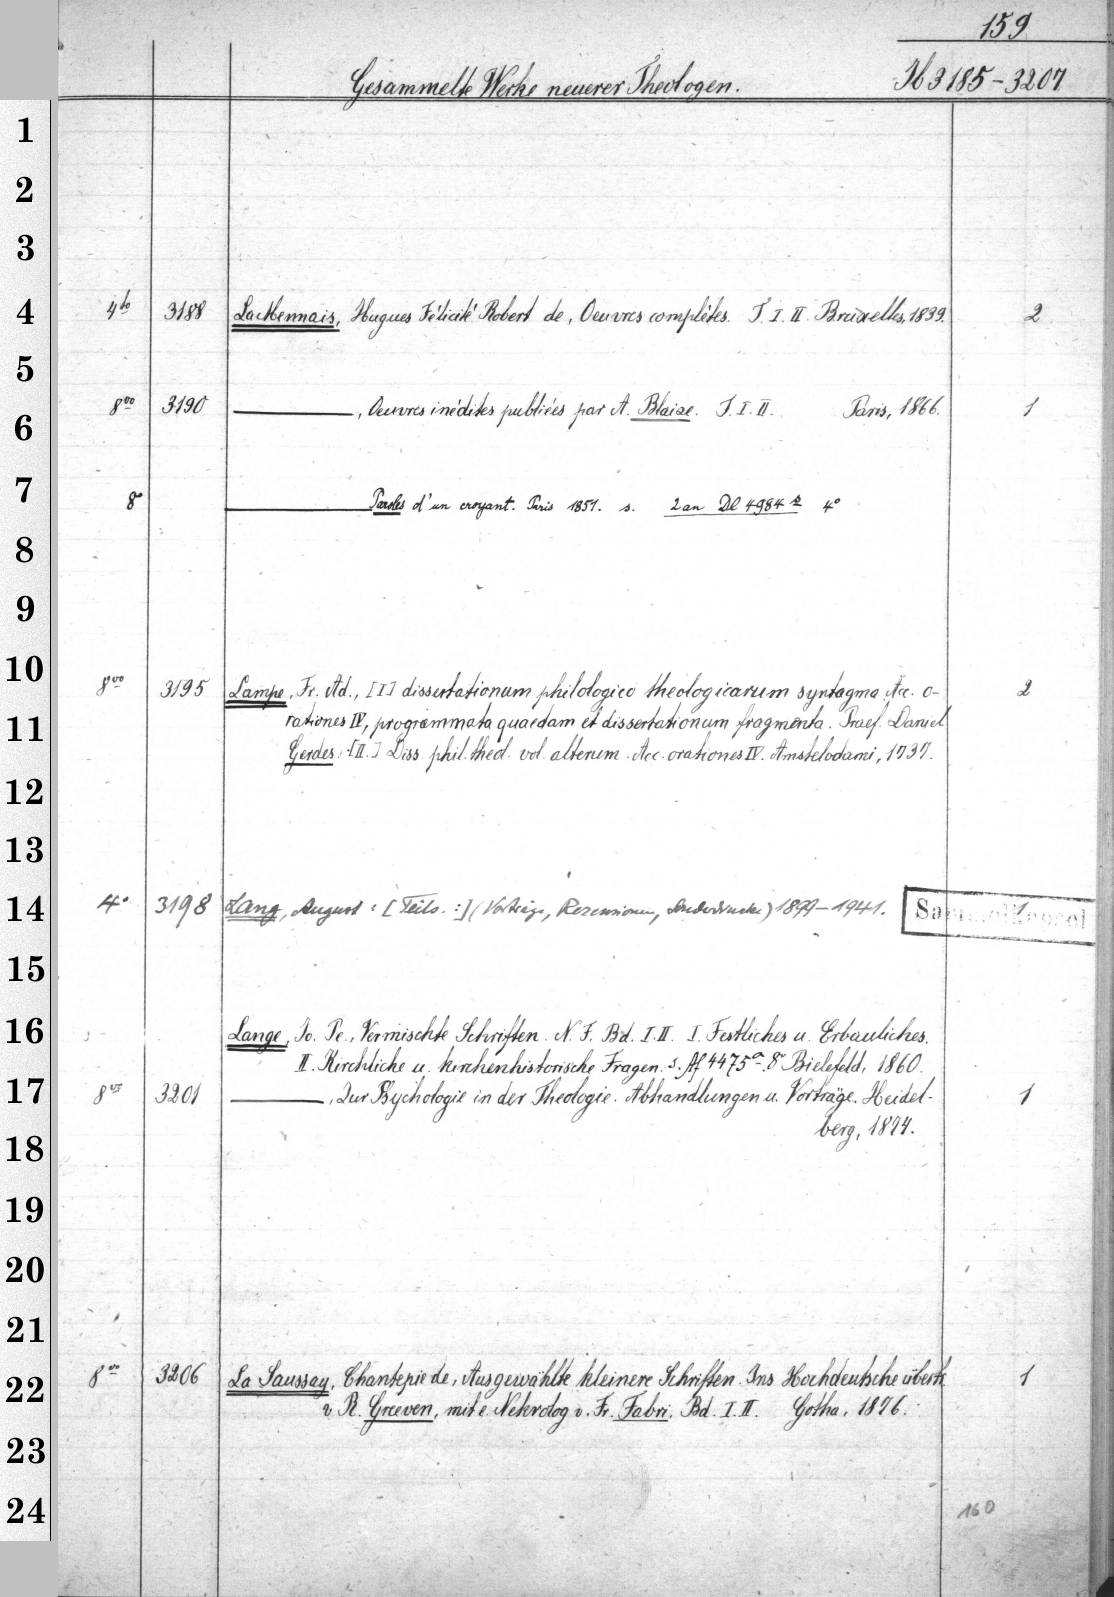 159
Gesammelte Werke neuerer Theologen. Ib 3185-3207
1
2
3
4
4to 3188 LaMennais, Hugues Félicité Robert de, Oeuvres complètes. T. I. II. Bruxelles, 1839. 2
5
8vo 3190 , Oeuvres inédites publiées par A. Blaize. T. I. II. Paris, 1866. 1
6
7
8° Paroles d'un croyant. Paris 1851. s. 2 an Dl 4984 4°
8
9
10
8vo 3195 Lampe, Fr. Ad., [I] dissertationum philologico theologicarum syntagma. Acc. o- 2
11
rationes IV, programmata quaedam et dissertationum fragmenta. Praef. Daniel
Gerdes. [II.] Diss. phil. theol. vol. alterum. Acc. orationes IV. Amstelodami, 1737.
12
13
14
4° 3198 Lang, August: [Teils.:] (Vorträge, Rezensionen, Sonderdrucke) 1899-1941. 1
Sammelkapsel
15
16
Lange, Jo. Pe., Vermischte Schriften. N. F. Bd. I. II. I. Festliches u. Erbauliches.
II. Kirchliche u. kirchenhistorische Fragen. s. Af 4475a. 8° Bielefeld, 1860.
17
8vo 3201 , Zur Psychologie in der Theologie. Abhandlungen u. Vorträge. Heidel- 1
berg, 1874.
18
19
20
21
22
8vo 3206 La Saussay, Chantepie de, Ausgewählte kleinere Schriften. Ins Hochdeutsche übertr. 1
v. R. Greeven, mit e. Nekrolog v. Fr. Fabri. Bd. I. II. Gotha, 1876.
23
24
160